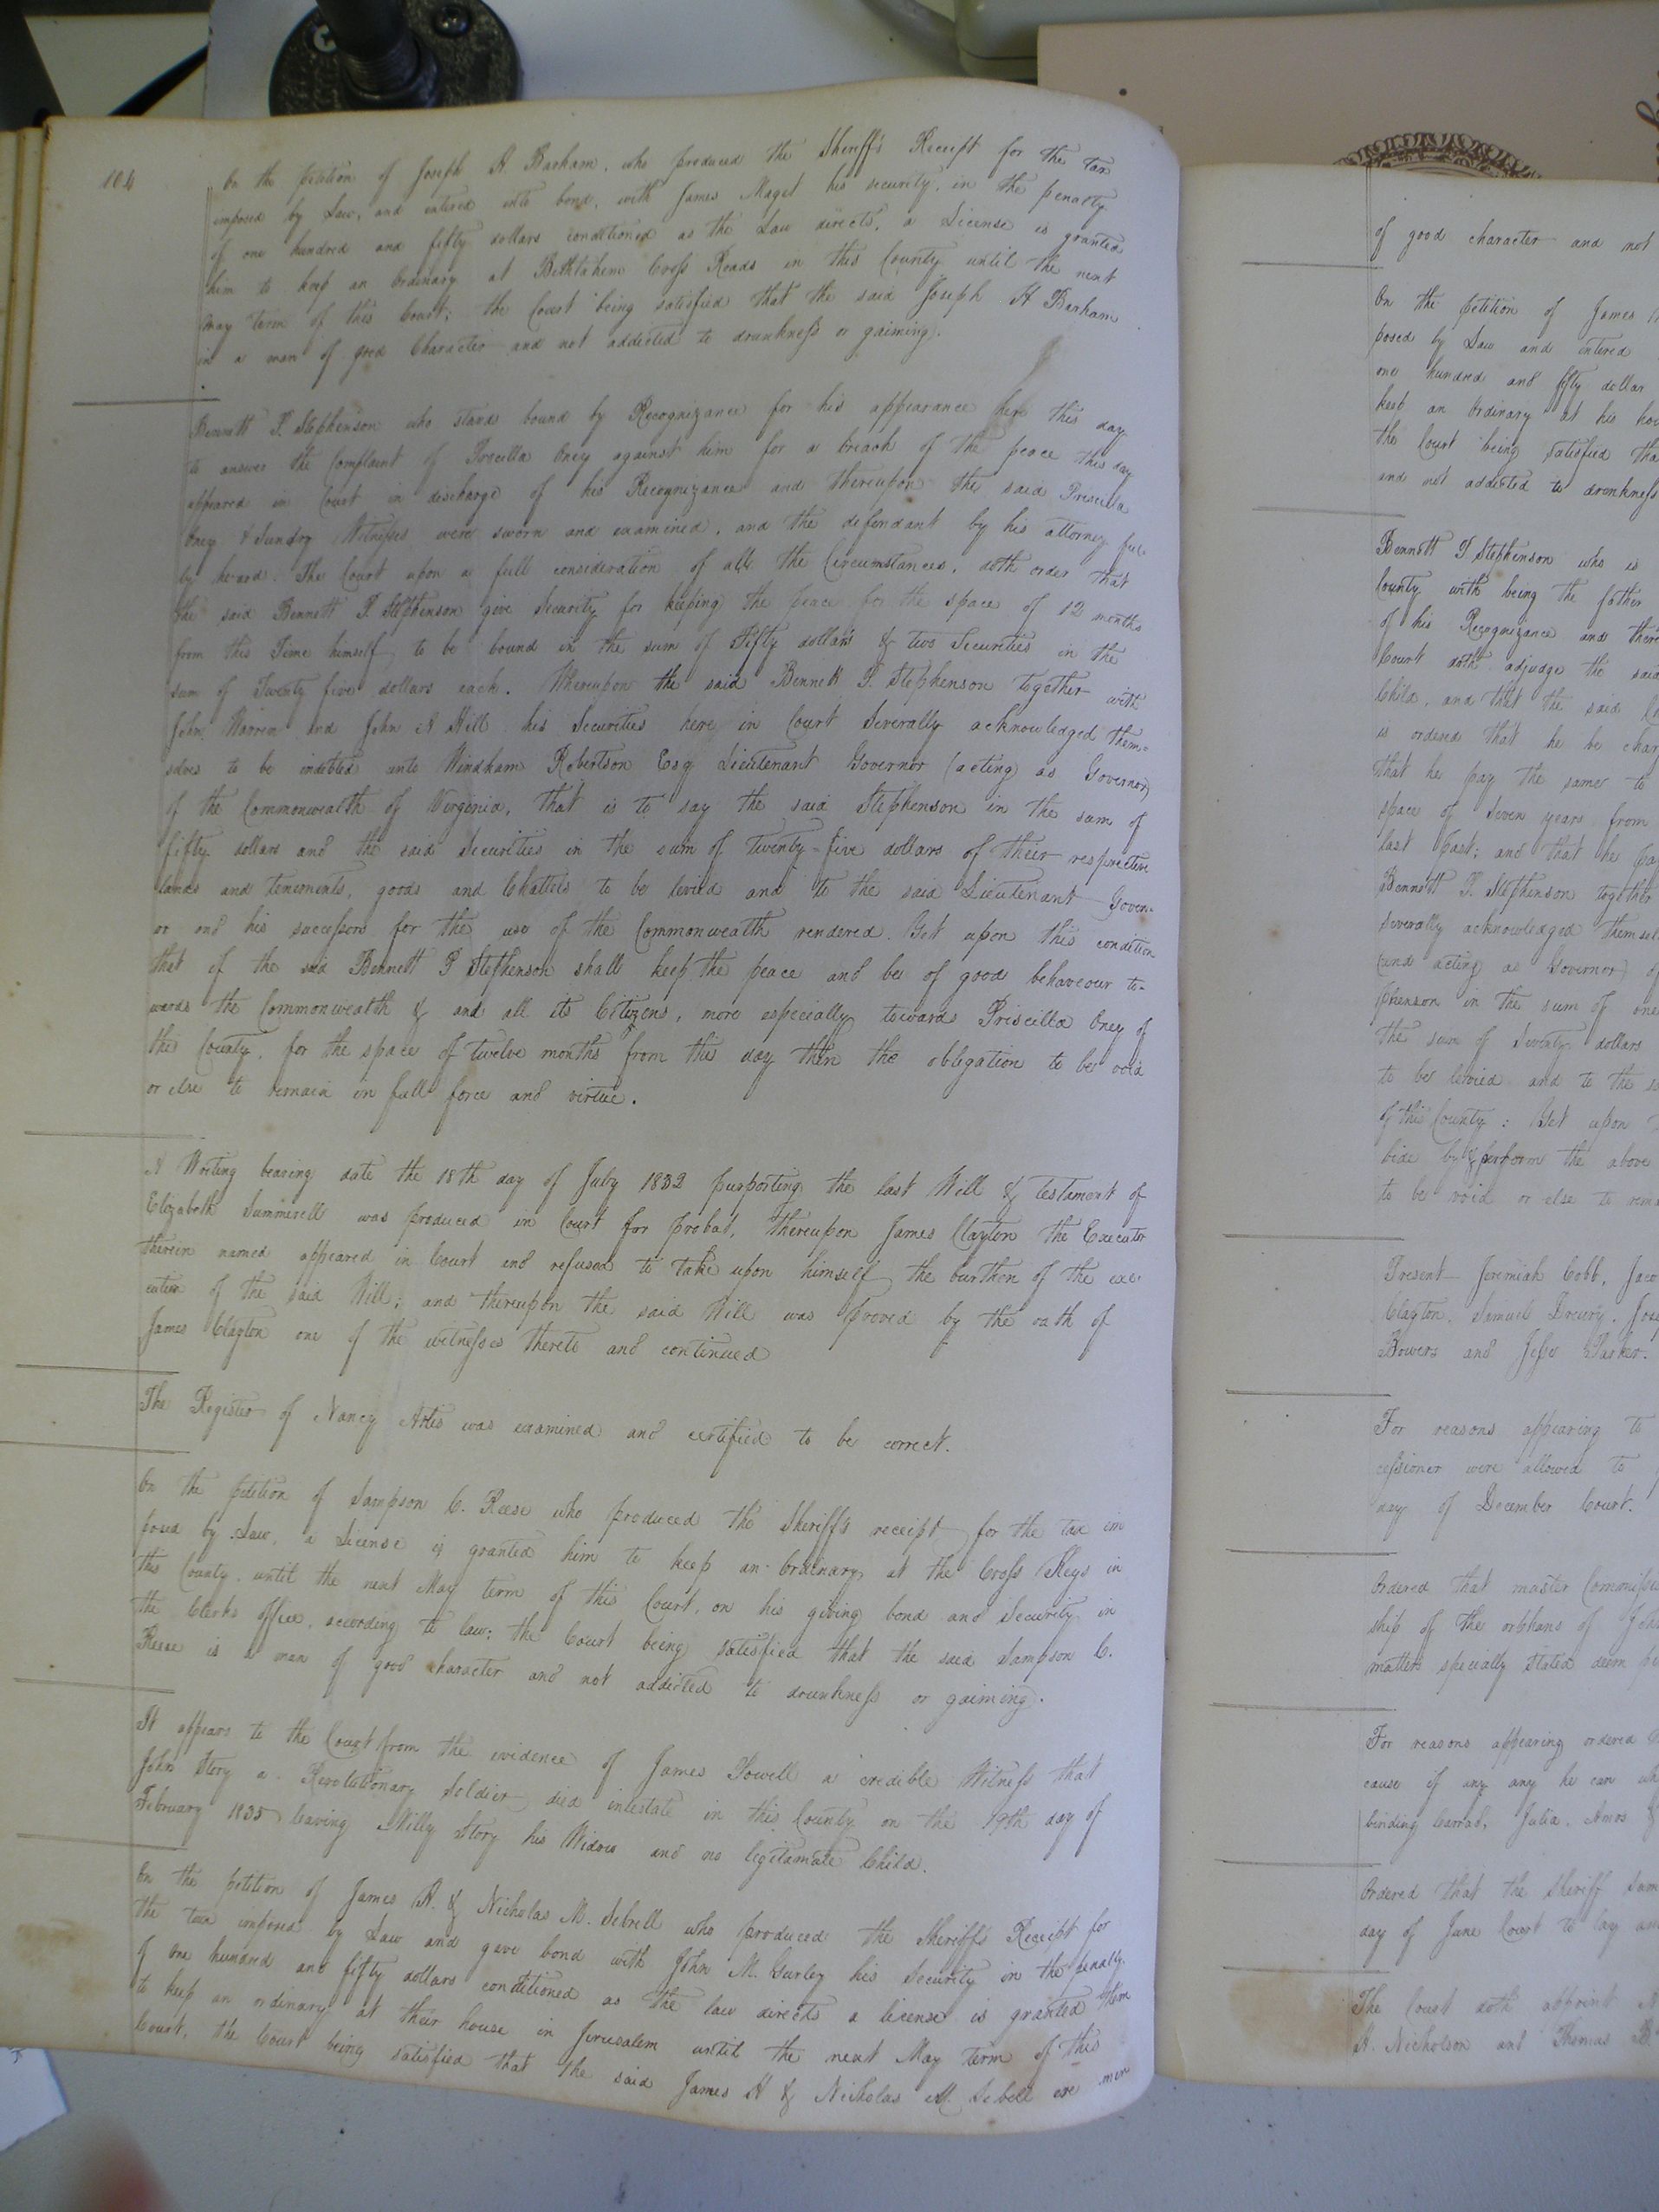 104
On the petition of Joseph H Barham, who produced the Sheriff's Receipt for the tax
imposed by Law, and entered into bond, with James Maget his security, in the penalty
of one hundred and fifty dollars conditioned as the Law directs, a License is granted
him to keep an Ordinary at Bethlehem Cross Roads in this County until the next
May term of this Court; the Court being satisfied that the said Joseph H Barham
is a man of good Character and not addicted to drunkness or gaiming.
Bennett P. Stephenson who stands bound by Recognizance for his appearance here this day
to answer the Complaint of Priscilla Oney against him for a breach of the peace this day
appeared in Court in discharge of his Recognizance and thereupon the said Priscilla
Oney & Sundry Witnesses were sworn and examined, and the defendant by his attorney ful-
ly heard. The Court upon a full consideration of all the Circumstances, doth order that
the said Bennett P. Stephenson give Security for keeping the peace for the space of 12 months
from this Time himself to be bound in the sum of Fifty dollars & two Securities in the
sum of Twenty five dollars each. Whereupon the said Bennett P. Stephenson together with
John Warren and John N Hill his Securities here in Court Severally acknowledged them-
selves to be indebted unto Windham Robertson Esq Lieutenant Governor (acting as Governor)
of the Commonwealth of Virginia, that is to say the said Stephenson in the sum of
fifty dollars and the said Securities in the sum of Twenty-five dollars of their respective
lands and tenements, goods and Chattels to be levied and to the said Lieutenant Govern-
or and his successors for the use of the Commonwealth rendered. Yet upon this condition
that if the said Bennett P Stephenson shall keep the peace and be of good behaveour to-
wards the Commonwealth & and all its Citizens, more especially towards Priscilla Oney of
this County, for the space of twelve months from this day then the obligation to be void
or else to remain in full force and virtue.
A Writing bearing date the 18th day of July 1832 purporting the last Will & testament of
Elizabeth Summerell was produced in Court for probat, thereupon James Clayton the Executor
therein named appeared in Court and refused to take upon himself the burthen of the exe-
cution of the said Will; and thereupon the said Will was proved by the oath of
James Clayton one of the witnesses thereto and continued
The Register of Nancy Artis was examined and certified to be correct.
On the petition of Sampson C. Reese who produced the Sheriff's receipt for the tax im
posed by Law, a License is granted him to keep an Ordinary at the Cross Keys in
this County until the next May term of this Court, on his giving bond and Security in
the Clerks office, according to law; the Court being satisfied that the said Sampson C.
Reese is a man of good character and not addicted to drunkness or gaiming.
It appears to the Court from the evidence of James Powell a credible Witness that
John Story a Revolutionary Soldier died intestate in this County on the 19th day of
February 1835 leaving Milly Story his Widow and no legitamate Child.
On the petition of James H. & Nicholas M. Sebrell who produced the Sheriff's Receipt for
the tax imposed by Law and gave bond with John M. Gurley his Security in the penalty
of one hundred and fifty dollars conditioned as the law directs a license is granted them
to keep an ordinary at their house in Jerusalem until the next May term of this
Court, the Court being satisfied that the said James H & Nicholas M. Sebell are men
of good character and not
On the petition of James
posed by Law and entered
one hundred and fifty dollar
keep an Ordinary at his hou
the Court being satisfied tha
and not addicted to drunkness
Bennett P Stephenson who is
County with being the father
of his Recognizance and there
Court doth adjudge the said
Child, and that the said
is ordered that he be char
that he pay the same to
space of Seven years from
last past; and that he pa
Bennett P. Stephenson together
severally acknowledged themsel
(and acting as Governor) of
phenson in the sum of one
the sum of Twenty dollars
to be levied and to the
of this County: Yet upon
bide by & perform the above
to be void or else to rema
Present Jeremiah Cobb, Jaco
Clayton, Samuel Drewry, Jos
Bowers and Jesse Parker.
For reasons appearing to
cessioner were allowed to
day of December Court.
Ordered that master Commissio
ship of the orphans of John
matters specially stated deem pe
For reasons appearing ordered
cause if any any he can wh
binding Julia, Amos &
Ordered that the Sheriff Sum
day of June Court to lay
The Court doth appoint
H. Nicholson and Thomas B.